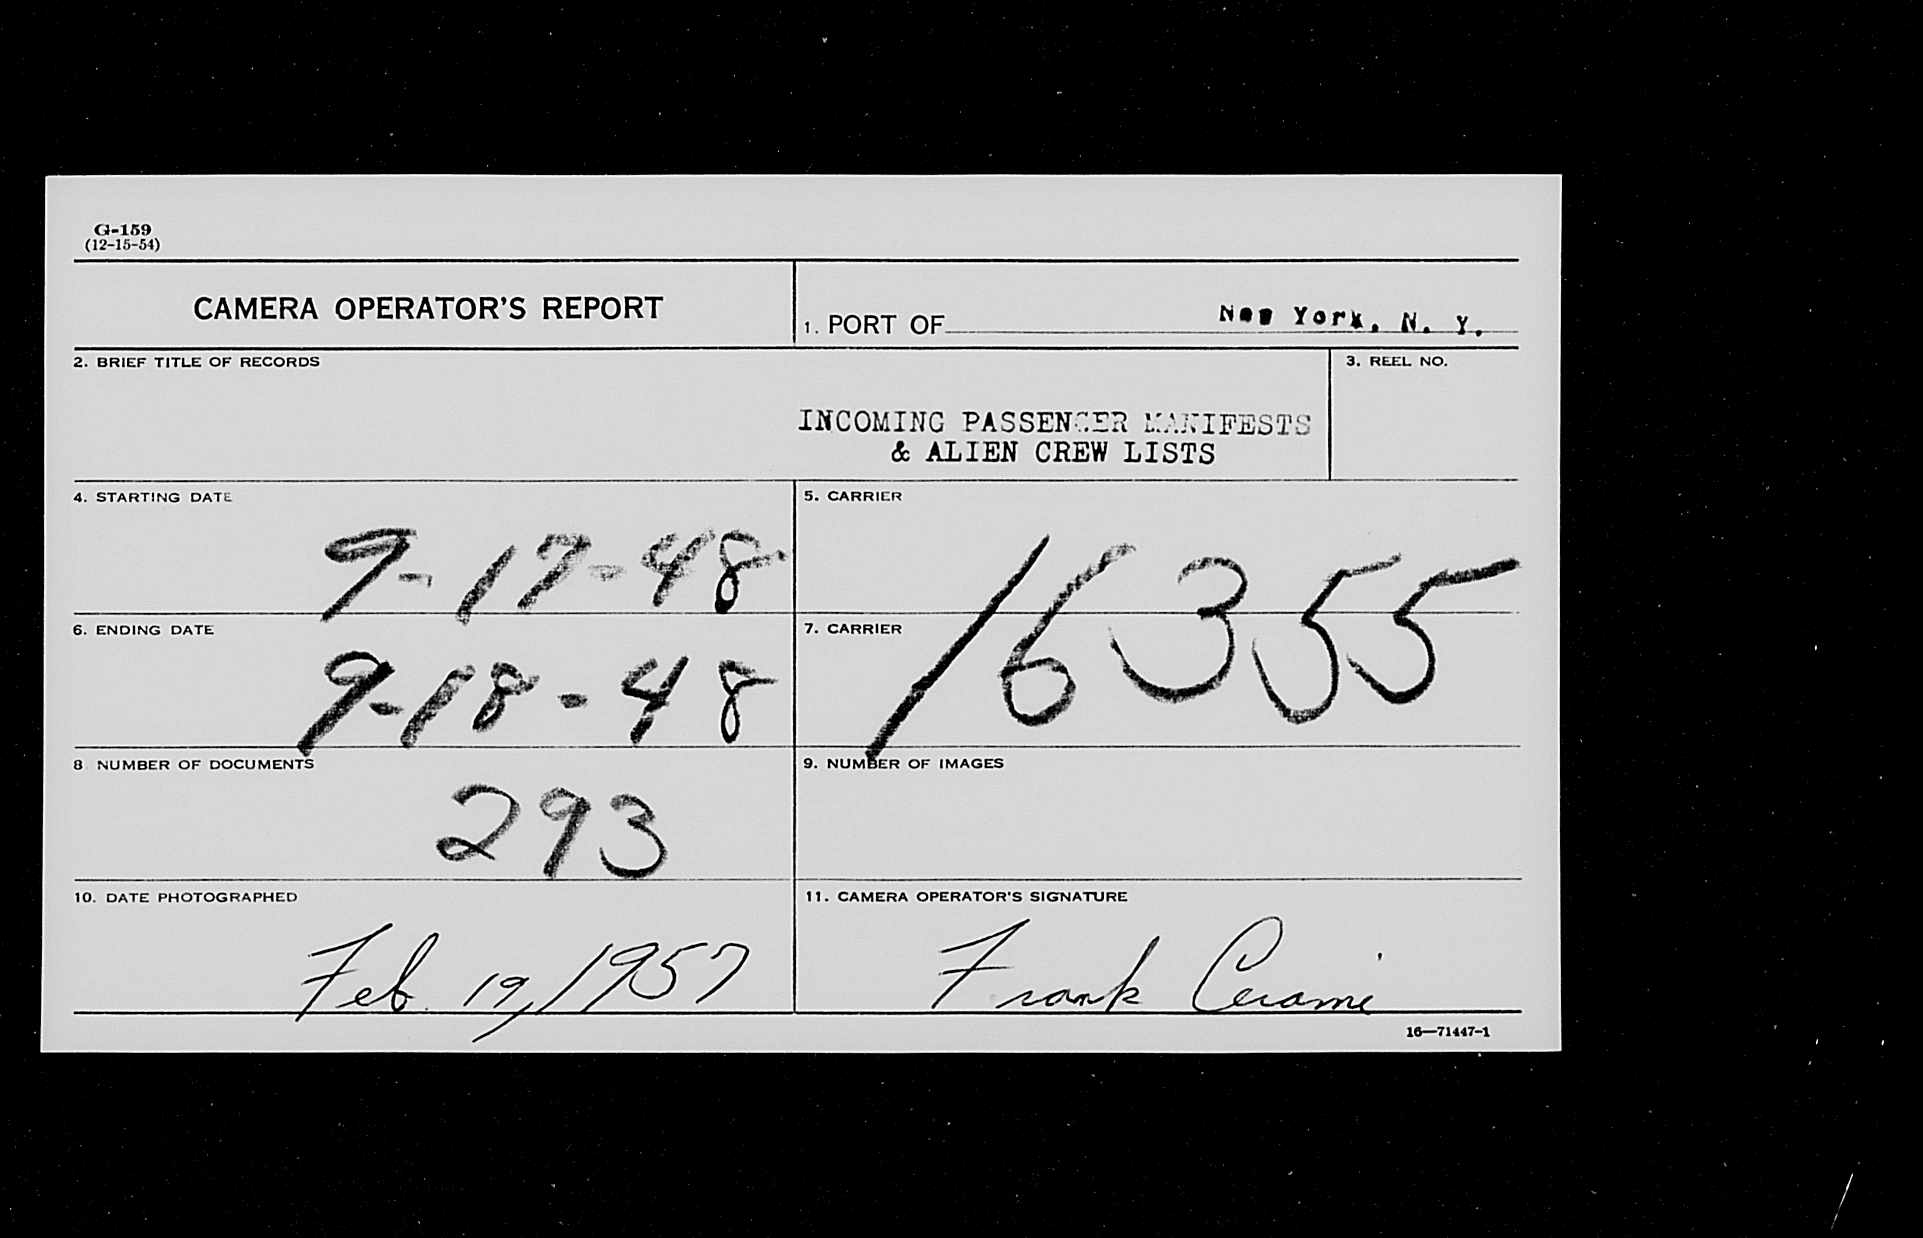 G-159
(12-15-54)
CAMERA OPERATOR'S REPORT
1. PORT OF New York, N. Y.
2. BRIEF TITLE OF RECORDS
3. REEL NO.
INCOMING PASSENGER MANIFESTS
& ALIEN CREW LISTS
4. STARTING DATE
9-17-48
5. CARRIER
16355
6. ENDING DATE
9-18-48
7. CARRIER
8 NUMBER OF DOCUMENTS
293
9. NUMBER OF IMAGES
10. DATE PHOTOGRAPHED
Feb. 19, 1957
11. CAMERA OPERATOR'S SIGNATURE
Frank Cerami
16—71447-1